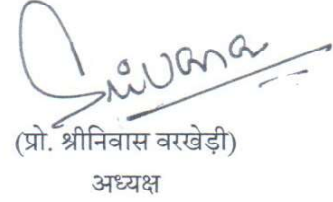 (प्रो. श्रीनिवास वरखेड़ी)
अध्यक्ष